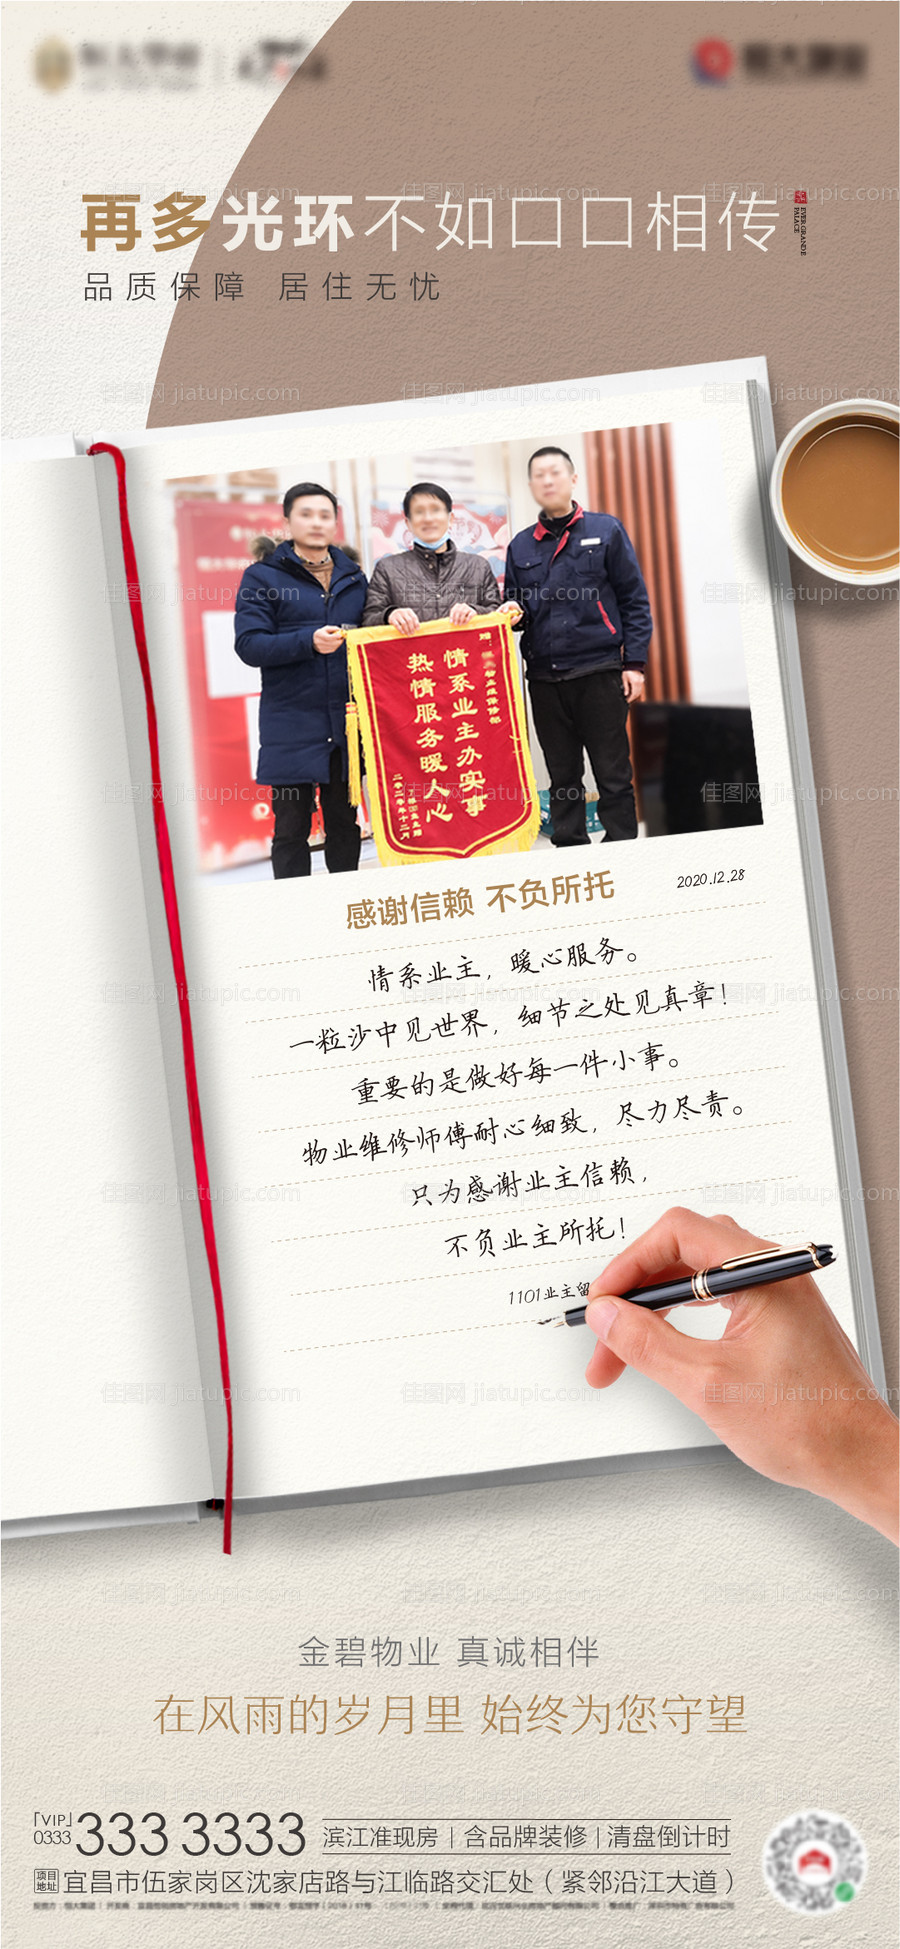 再多光环不如口口相传
EVERGRANDE PALACE
品质保障 居住无忧
情系业主办实事
热情服务暖人心
感谢信赖 不负所托
2020.12.28
情系业主，暖心服务。
一粒沙中见世界，细节之处见真章！
重要的是做好每一件小事。
物业维修师傅耐心细致，尽力尽责。
只为感谢业主信赖，
不负业主所托！
1101业主留
金碧物业 真诚相伴
在风雨的岁月里 始终为您守望
「VIP」
0333
333 3333
滨江准现房 | 含品牌装修 | 清盘倒计时
项目地址
宜昌市伍家岗区沈家店路与江临路交汇处（紧邻沿江大道）
佳图网 jiatupic.com